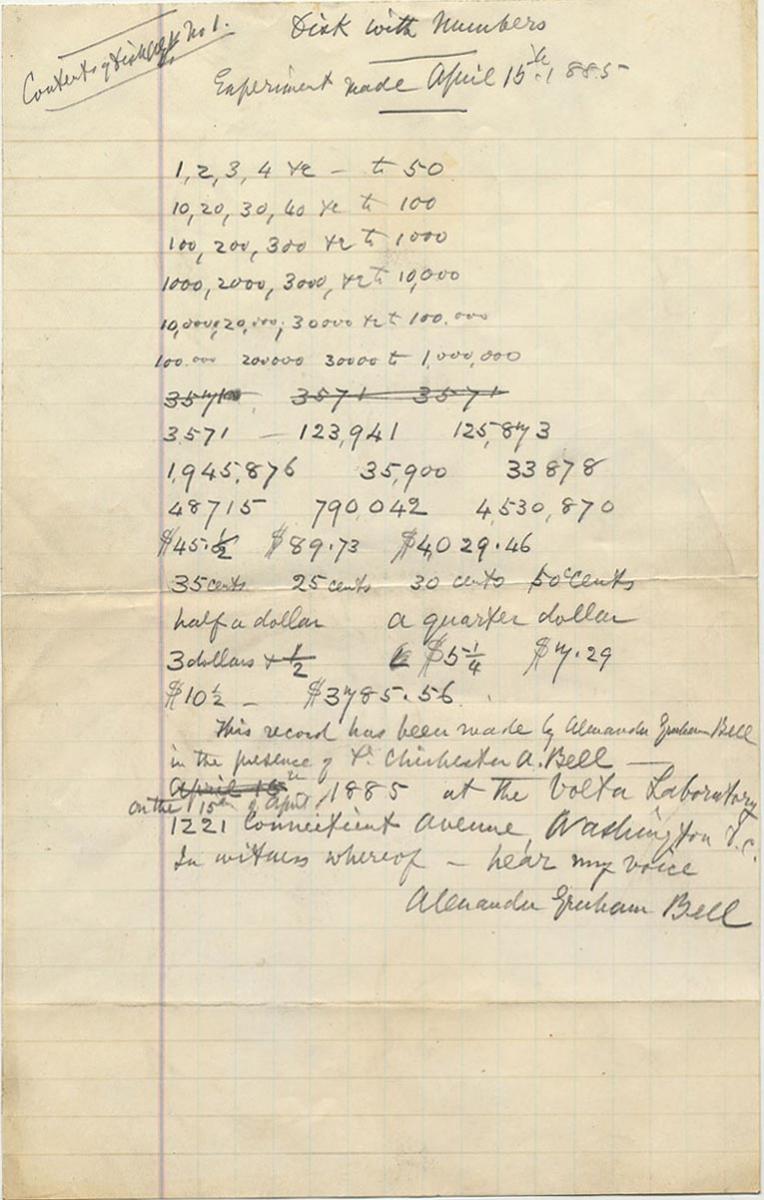 Contents of Disk No 1.
Disk with Numbers
Experiment made April 15th. 1885
1, 2, 3, 4 &c — to 50
10, 20, 30, 40 &c to 100
100, 200, 300 &c to 1000
1000, 2000, 3000, &c to 10,000
10,000, 20,000, 30000 &c to 100.000
100.000 200000 30000 to 1,000,000
3571 3571 3571
3571 — 123,941 125,873
1,945,876 35,900 33878
48715 790,042 4,530,870
$45.½ $89.73 $4,029.46
35 cents 25 cents 30 cents 50 cents
half a dollar a quarter dollar
3 dollars & ½ $5¼ $7.29
$10½ — $3785.56.
This record has been made by Alexander Graham Bell
in the presence of Dr. Chichester A. Bell —
April 15th
on the 15th of April, 1885 at the Volta Laboratory
1221 Connecticut Avenue, Washington D.C.
In witness whereof — hear my voice
Alexander Graham Bell